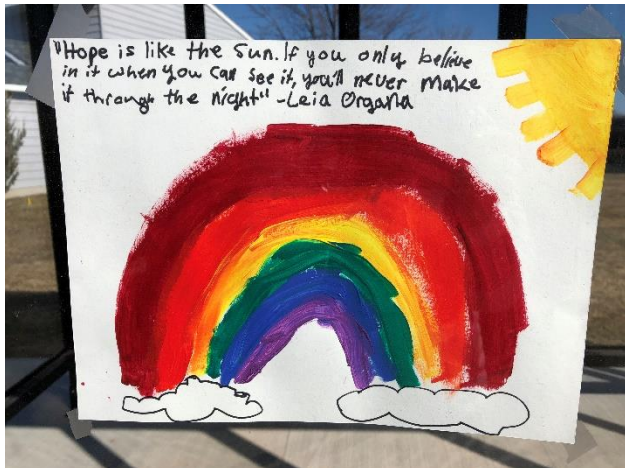 "Hope is like the Sun. If you only believe
in it when you can see it, you'll never make
it through the night" -Leia Organa